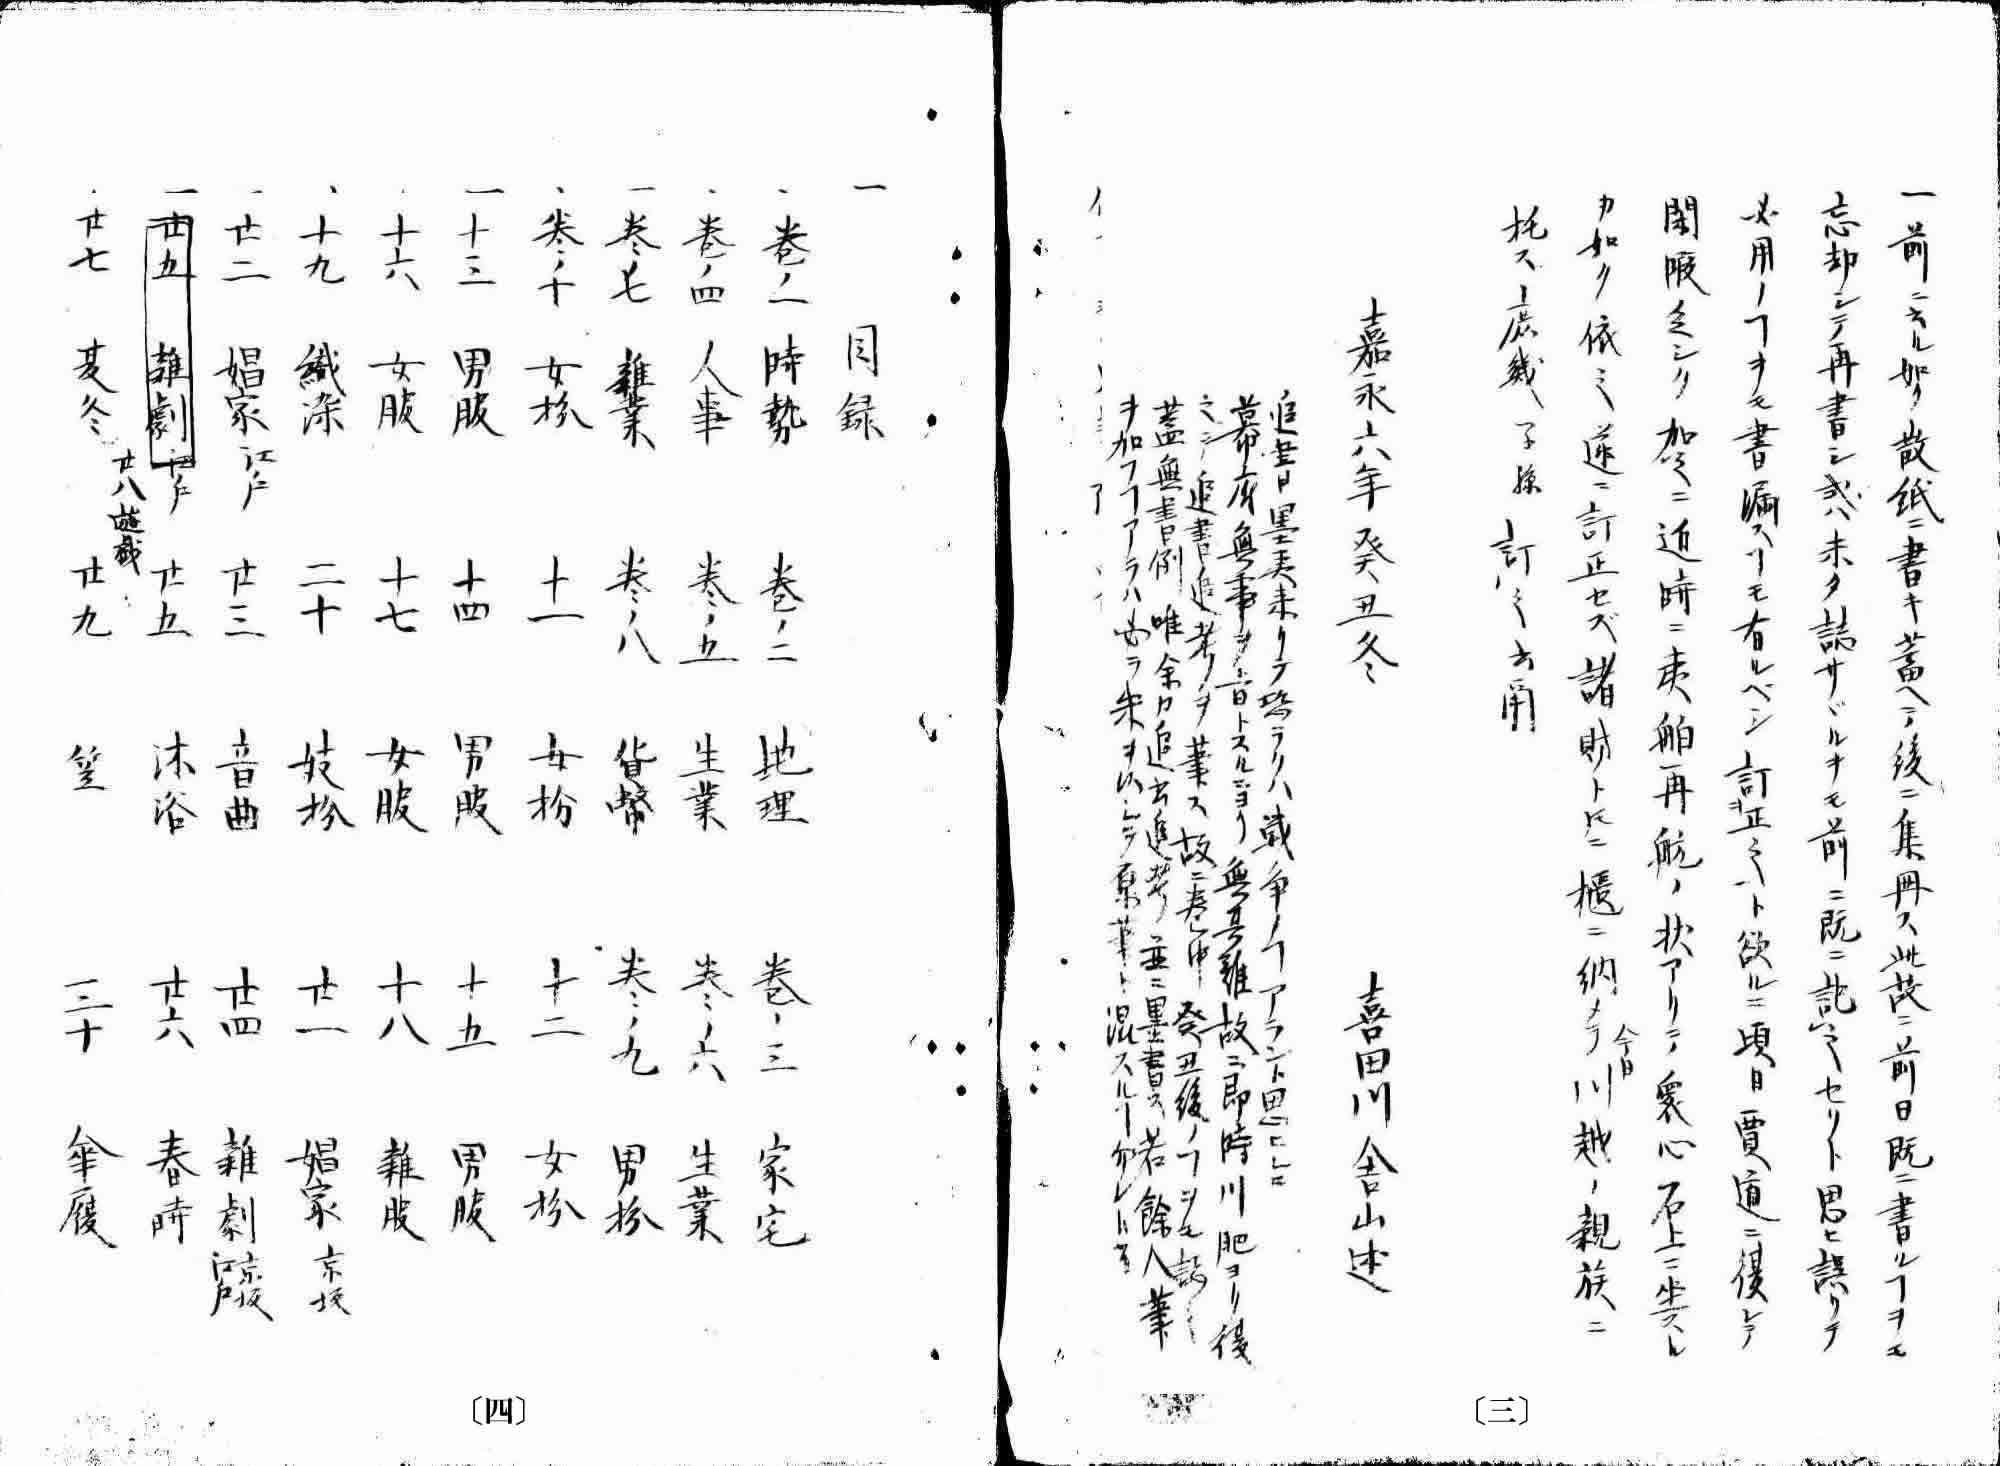 一前ニ云ル如ク散紙ニ書キ蓄ヘテ後ニ集冊ス此故ニ前日既ニ書ルヿヲモ
忘却シテ再書シ或ハ未タ誌サヾルヲモ前ニ既ニ記之セリト思ヒ誤リテ
必用ノヿヲモ書漏スヿモ有ルベシ訂正之ト欲ルニ頃日賈道ニ復シテ
閑暇乏シク加之ニ近時ニ夷舶再航ノ状アリテ衆心石上ニ坐スル
カ如ク依之遂ニ訂正セズ諸財ト共ニ櫃ニ納メテ今日川越ノ親族ニ
托ス庶幾子孫訂之云爾
嘉永六年癸丑冬
喜田川舎山述
追書曰墨夷来リテ恐ラクハ戦争ノヿアラント思ヒシニ
幕府無事ヲ旨トスルニヨリ無其難故ニ即時川肥ヨリ復
之シ追書追考ヲ筆ス故ニ巻中癸丑後ノヿヲモ誌シ
蓋無書例唯余カ追書追考ノ並ニ墨書ス若餘人筆
ヲ加フヿアラハ必ラ朱ヲ以シテ原筆ト混スルヿ勿レ
〔三〕
一 目録
巻ノ一 時勢 巻ノ二 地理 巻ノ三 家宅
巻ノ四 人事 巻ノ五 生業 巻ノ六 生業
巻ノ七 雑業 巻ノ八 貨幣 巻ノ九 男扮
巻ノ十 女扮 十一 女扮 十二 女扮
十三 男服 十四 男服 十五 男服
十六 女服 十七 女服 十八 雑服
十九 織染 二十 妓扮 廿一 娼家 京坂
廿二 娼家 江戸 廿三 音曲 廿四 雑劇 京坂 江戸
廿五 雑劇 江戸 廿五 沐浴 廿六 春時
廿七 夏冬 廿八 遊戯 廿九 笠 三十 傘履
〔四〕